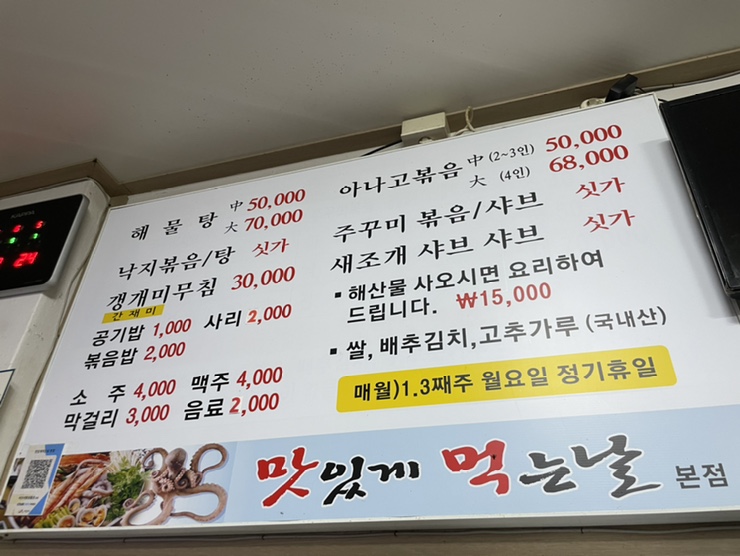 해물탕 中 50,000
大 70,000
낙지볶음/탕 싯가
갱개미무침 30,000
간재미
공기밥 1,000 사리 2,000
볶음밥 2,000
소 주 4,000 맥주 4,000
막걸리 3,000 음료 2,000
아나고볶음 中 (2~3인) 50,000
大 (4인) 68,000
주꾸미 볶음/샤브 싯가
새조개 샤브 샤브 싯가
▪ 해산물 사오시면 요리하여
드립니다. ₩15,000
▪ 쌀, 배추김치,고추가루 (국내산)
매월)1.3째주 월요일 정기휴일
맛있게 먹는날 본점
24